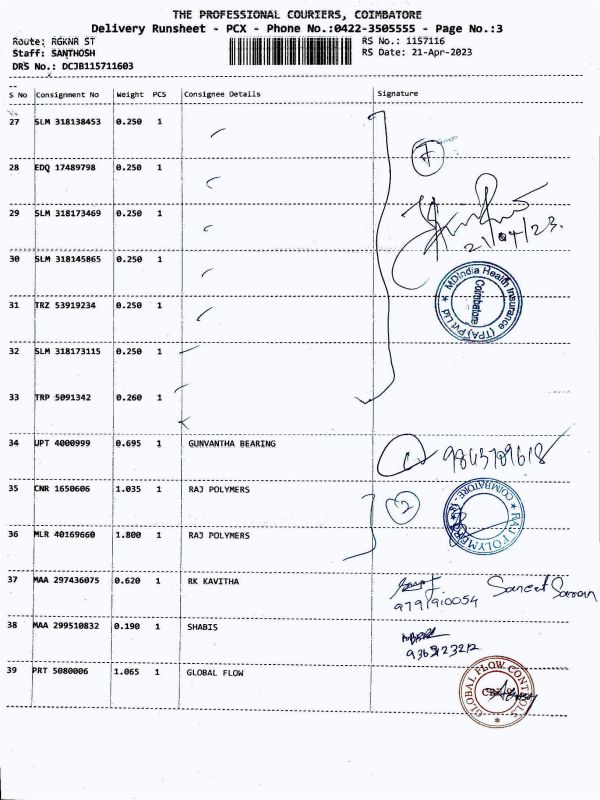 THE PROFESSIONAL COURIERS, COIMBATORE
Delivery Runsheet - PCX - Phone No.:0422-3505555 - Page No.:3
Route: RGKNR ST
RS No.: 1157116
Staff: SANTHOSH
RS Date: 21-Apr-2023
DRS No.: DCJB115711603
S No Consignment No Weight PCS Consignee Details Signature
27 SLM 318138453 0.250 1
28 EDQ 17489798 0.250 1
7
29 SLM 318173469 0.250 1
21/04/23.
30 SLM 318145865 0.250 1
MDIndia Health Insurance (TPA) Pvt Ltd
Coimbatore
31 TRZ 53919234 0.250 1
32 SLM 318173115 0.250 1
33 TRP 5091342 0.260 1
34 UPT 4000999 0.695 1 GUNVANTHA BEARING
1
35 CNR 1650606 1.035 1 RAJ POLYMERS
2
RAJ POLYMERS COIMBATORE
36 MLR 40169660 1.800 1 RAJ POLYMERS
37 MAA 297436075 0.620 1 RK KAVITHA
9791910054
38 MAA 299510832 0.190 1 SHABIS
39 PRT 5080006 1.065 1 GLOBAL FLOW
GLOBAL FLOW CONTROLS